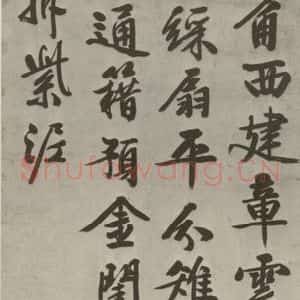 西建章雲
綵扇平分雉
通籍預金閨
紫泥
Shufawang.CN